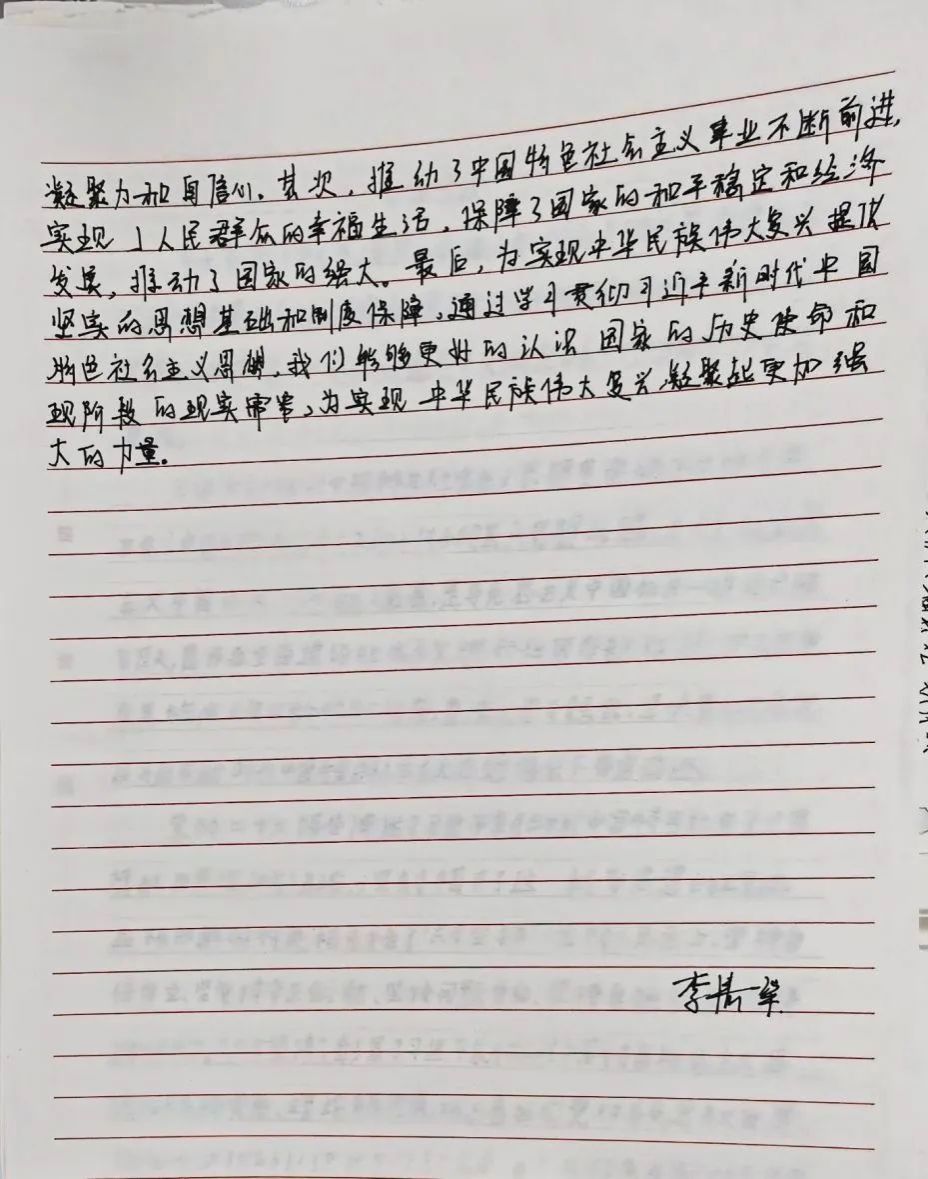 凝聚力和自信心。其次，推动了中国特色社会主义事业不断前进，
实现了人民群众的幸福生活，保障了国家的和平稳定和经济
发展，推动了国家的强大。最后，为实现中华民族伟大复兴提供
坚实的思想基础和制度保障，通过学习贯彻习近平新时代中国
特色社会主义思想，我们能够更好的认识国家的历史使命和
现阶段的现实需要，为实现中华民族伟大复兴凝聚起更加强
大的力量。
李